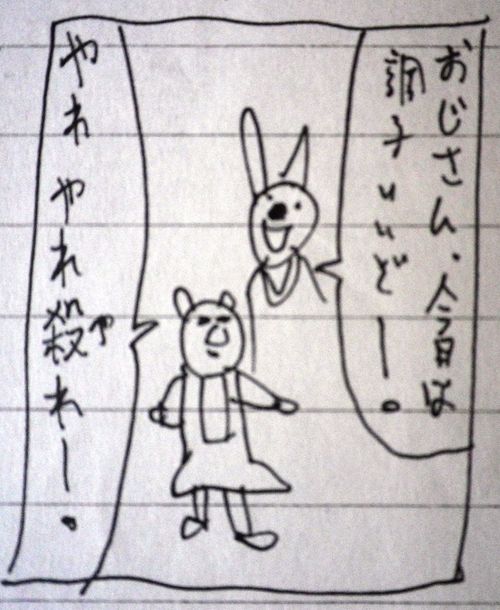 おじさん、今日は
調子いいぞー。
やれやれ殺れー。
や